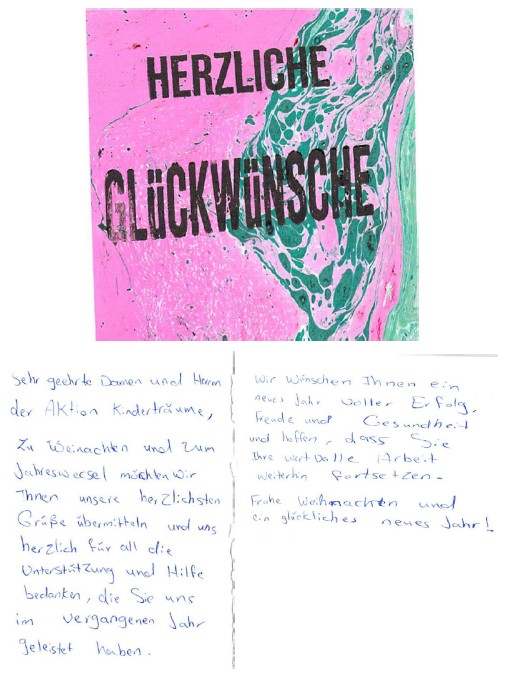 HERZLICHE
GLÜCKWÜNSCHE
Sehr geehrte Damen und Herrn
der Aktion Kinderträume,
Zu Weinachten und zum
Jahreswersel möchten wir
Ihnen unsere herzlichsten
Grüße übermitteln und uns
herzlich für all die
Unterstützung und Hilfe
bedanken, die Sie uns
im vergangenen Jahr
geleistet haben.
Wir wünschen Ihnen ein
neues Jahr voller Erfolg,
Freude und Gesundheit
und hoffen, dass Sie
Ihre wertvolle Arbeit
weiterhin fortsetzen.
Frohe Weihnachten und
ein glückliches neues Jahr!